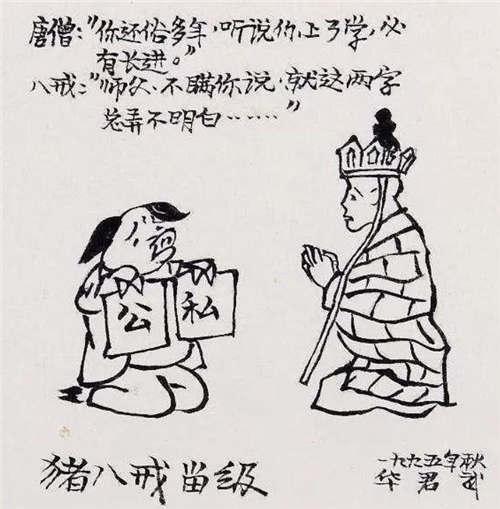 唐僧:“你还俗多年,听说你上了学,必
有长进。”
八戒:“师父、不瞒你说,就这两字
总弄不明白……”
公
私
猪八戒留级
一九九五年秋
华君武